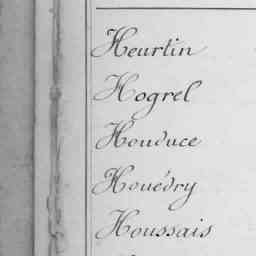 Heurtin
Hogrel
Houduce
Houédry
Houssais